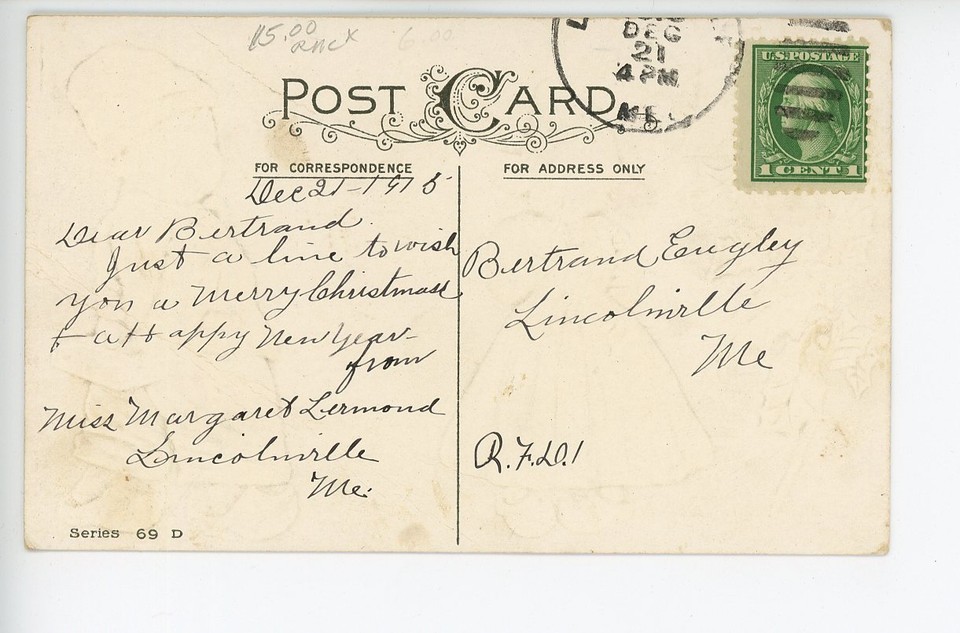 $15.00
6.00
DEC
21
4 PM
ME.
POST CARD
U.S. POSTAGE
1 CENT 1
FOR CORRESPONDENCE
FOR ADDRESS ONLY
Dec 21-1915
Dear Bertrand
Just a line to wish
you a Merry Christmas
+ a Happy New Year-
from
Miss Margaret Lermond
Lincolnville
Me.
Bertrand Eugley
Lincolnville
Me
R.F.D.1
Series 69 D